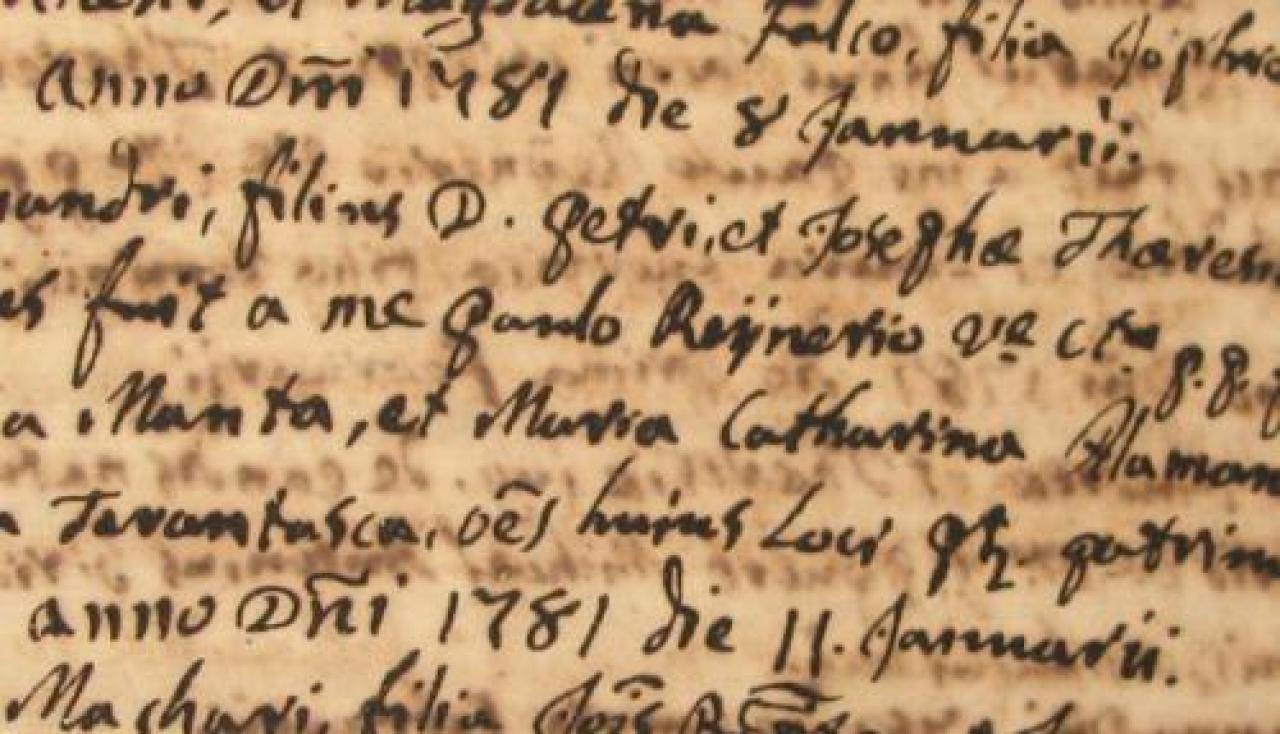 et Magdalena Falco, filia Josephi
Anno Dm̃i 1781 die 8 Januarii.
sandri, filius D. Petri, et Josephæ Thæresi
es fuit a me Paulo Reÿnerio
a Manta, et Maria Catharina Alaman
Tarantasca, oẽs huius Loci patrini
anno Dñi 1781 die 11. Januarii.
Machari, filia Joĩs